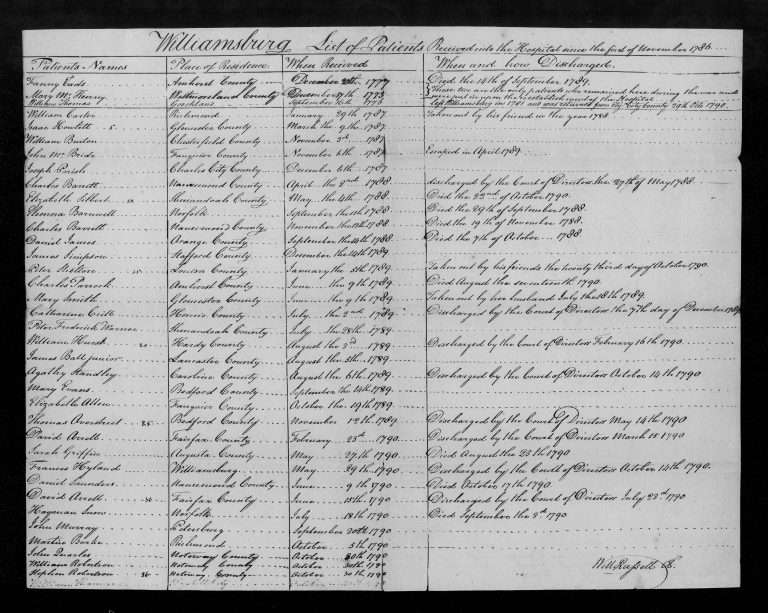 Williamsburg List of Patients Received into the Hospital since the first of November 1786.
Patients Names Place of Residence When Received When and how Discharged.
Fanny Eads Amherst County December 1777 Died the 14th of September 1789.
Mary McHenry Westmoreland County December 17th 1773 These two are the only patients who remained here during the war and
William Thomas Goochland September 1776 were put in upon the reestablishment of the Hospital
left Williamsburg in 1781 and was received from City County 29th Octo 1790.
William Carter Richmond January 29th 1787 Taken out by his friend in the year 1788
Isaac Howlett 5 Gloucester County March the 9th 1787
William Burton Chesterfield County November 3d 1787
John McBride Fauquier County November 6th 1787 Escaped in April 1789
Joseph Parish Charles City County December 6th 1787
Charles Barrett Nansemond County April the 2nd 1788 discharged by the Court of Directors the 27th of May 1788
Elizabeth 10 Shenandoah County May the 4th 1788 Died the 22nd of October 1790
Barnwell Norfolk September the 1788 Died the 29th of September 1788
Charles Barrett Nansemond County November the 1788 Died the 19th of November 1788
Daniel James Orange County September the 1788 Died the 7th of October 1788
James Simpson Stafford County December the 14th 1789
Peter 15 Louisa County January the 5th 1789 Taken out by his friends the twenty third day of October 1790
Charles Parrock Amherst County June the 9th 1789 Died August the seventeenth 1790
Mary Smith Gloucester County June the 9th 1789 Taken out by her husband July the 18th 1789.
Catharine Crill Henrico County July the 2nd 1789 Discharged by the Court of Directors the 7th day of December 1789
Peter Frederick Warner Shenandoah County July the 28th 1789
William Hurst 20 Hardy County August the 3d 1789 Discharged by the Court of Directors February 16th 1790
James Ball junior Lancaster County August the 5th 1789
Agathy Handley Caroline County August the 6th 1789 Discharged by the Court of Directors October 14th 1790
Mary Evans Bedford County September the 14th 1789
Elizabeth Allen Fauquier County October the 19th 1789
Thomas Overstreet 25 Bedford County November 12th 1789 Discharged by the Court of Directors May 14th 1790
David Arell Fairfax County February 25th 1790 Discharged by the Court of Directors March 15 1790
Sarah Griffin Augusta County May 27th 1790 Died August the 25th 1790
Francis Hyland Williamsburg May 29th 1790 Discharged by the Court of Directors October 14th 1790.
Daniel Saunders Nansemond County June 9th 1790 Died October 17th 1790
David Arell 30 Fairfax County June 15th 1790 Discharged by the Court of Directors July 22d 1790
Hayman Snow Norfolk July 18th 1790 Died September the 2d 1790
John Murray Petersburg September 20th 1790
Martin Burke Richmond October 5th 1790
John Quarles Notoway County October 30th 1790
William Robertson Notoway County October 30th 1790
Stephen Robertson 36 Notoway County October 30th 1790
Will Russell C.